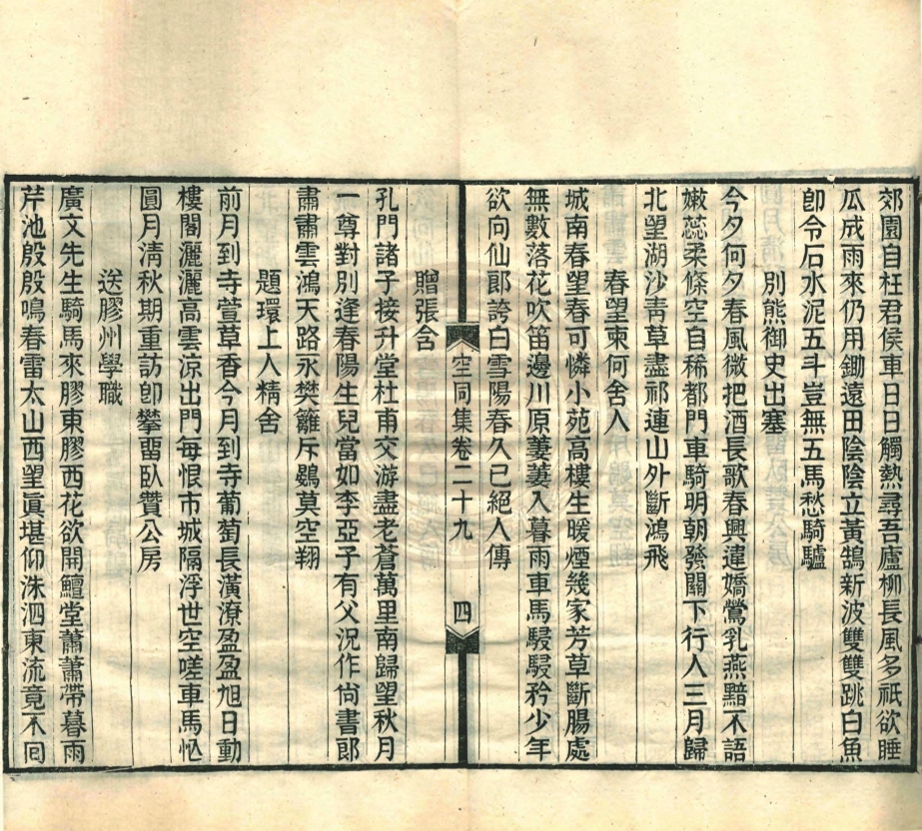 郊園自枉君侯車日日觸熱尋吾廬柳長風多祇欲睡
瓜成雨來仍用鋤遠田陰陰立黃鵠新波雙雙跳白魚
卽令石水泥五斗豈無五馬愁騎驢
別熊御史出塞
今夕何夕春風微把酒長歌春興違嬌鶯乳燕黯不語
嫩蕊柔條空自稀都門車騎明朝發關下行人三月歸
北望湖沙靑草盡祁連山外斷鴻飛
春望柬何舍人
城南春望春可憐小苑高樓生暖煙幾家芳草斷腸處
無數落花吹笛邊川原萋萋入暮雨車馬駸駸矜少年
欲向仙郞誇白雪陽春久已絕人傳
空同集卷二十九
四
贈張含
孔門諸子接升堂杜甫交游盡老蒼萬里南歸望秋月
一尊對別逢春陽生兒當如李亞子有父況作尙書郞
肅肅雲鴻天路永樊籬斥鷃莫空翔
題環上人精舍
前月到寺萱草香今月到寺葡萄長潢潦盈盈旭日動
樓閣灑灑高雲涼出門每恨市城隔浮世空嗟車馬忙
圓月淸秋期重訪卽攀畱臥贊公房
送膠州學職
廣文先生騎馬來膠東膠西花欲開鱣堂蕭蕭帶暮雨
芹池殷殷鳴春雷太山西望眞堪仰洙泗東流竟不回